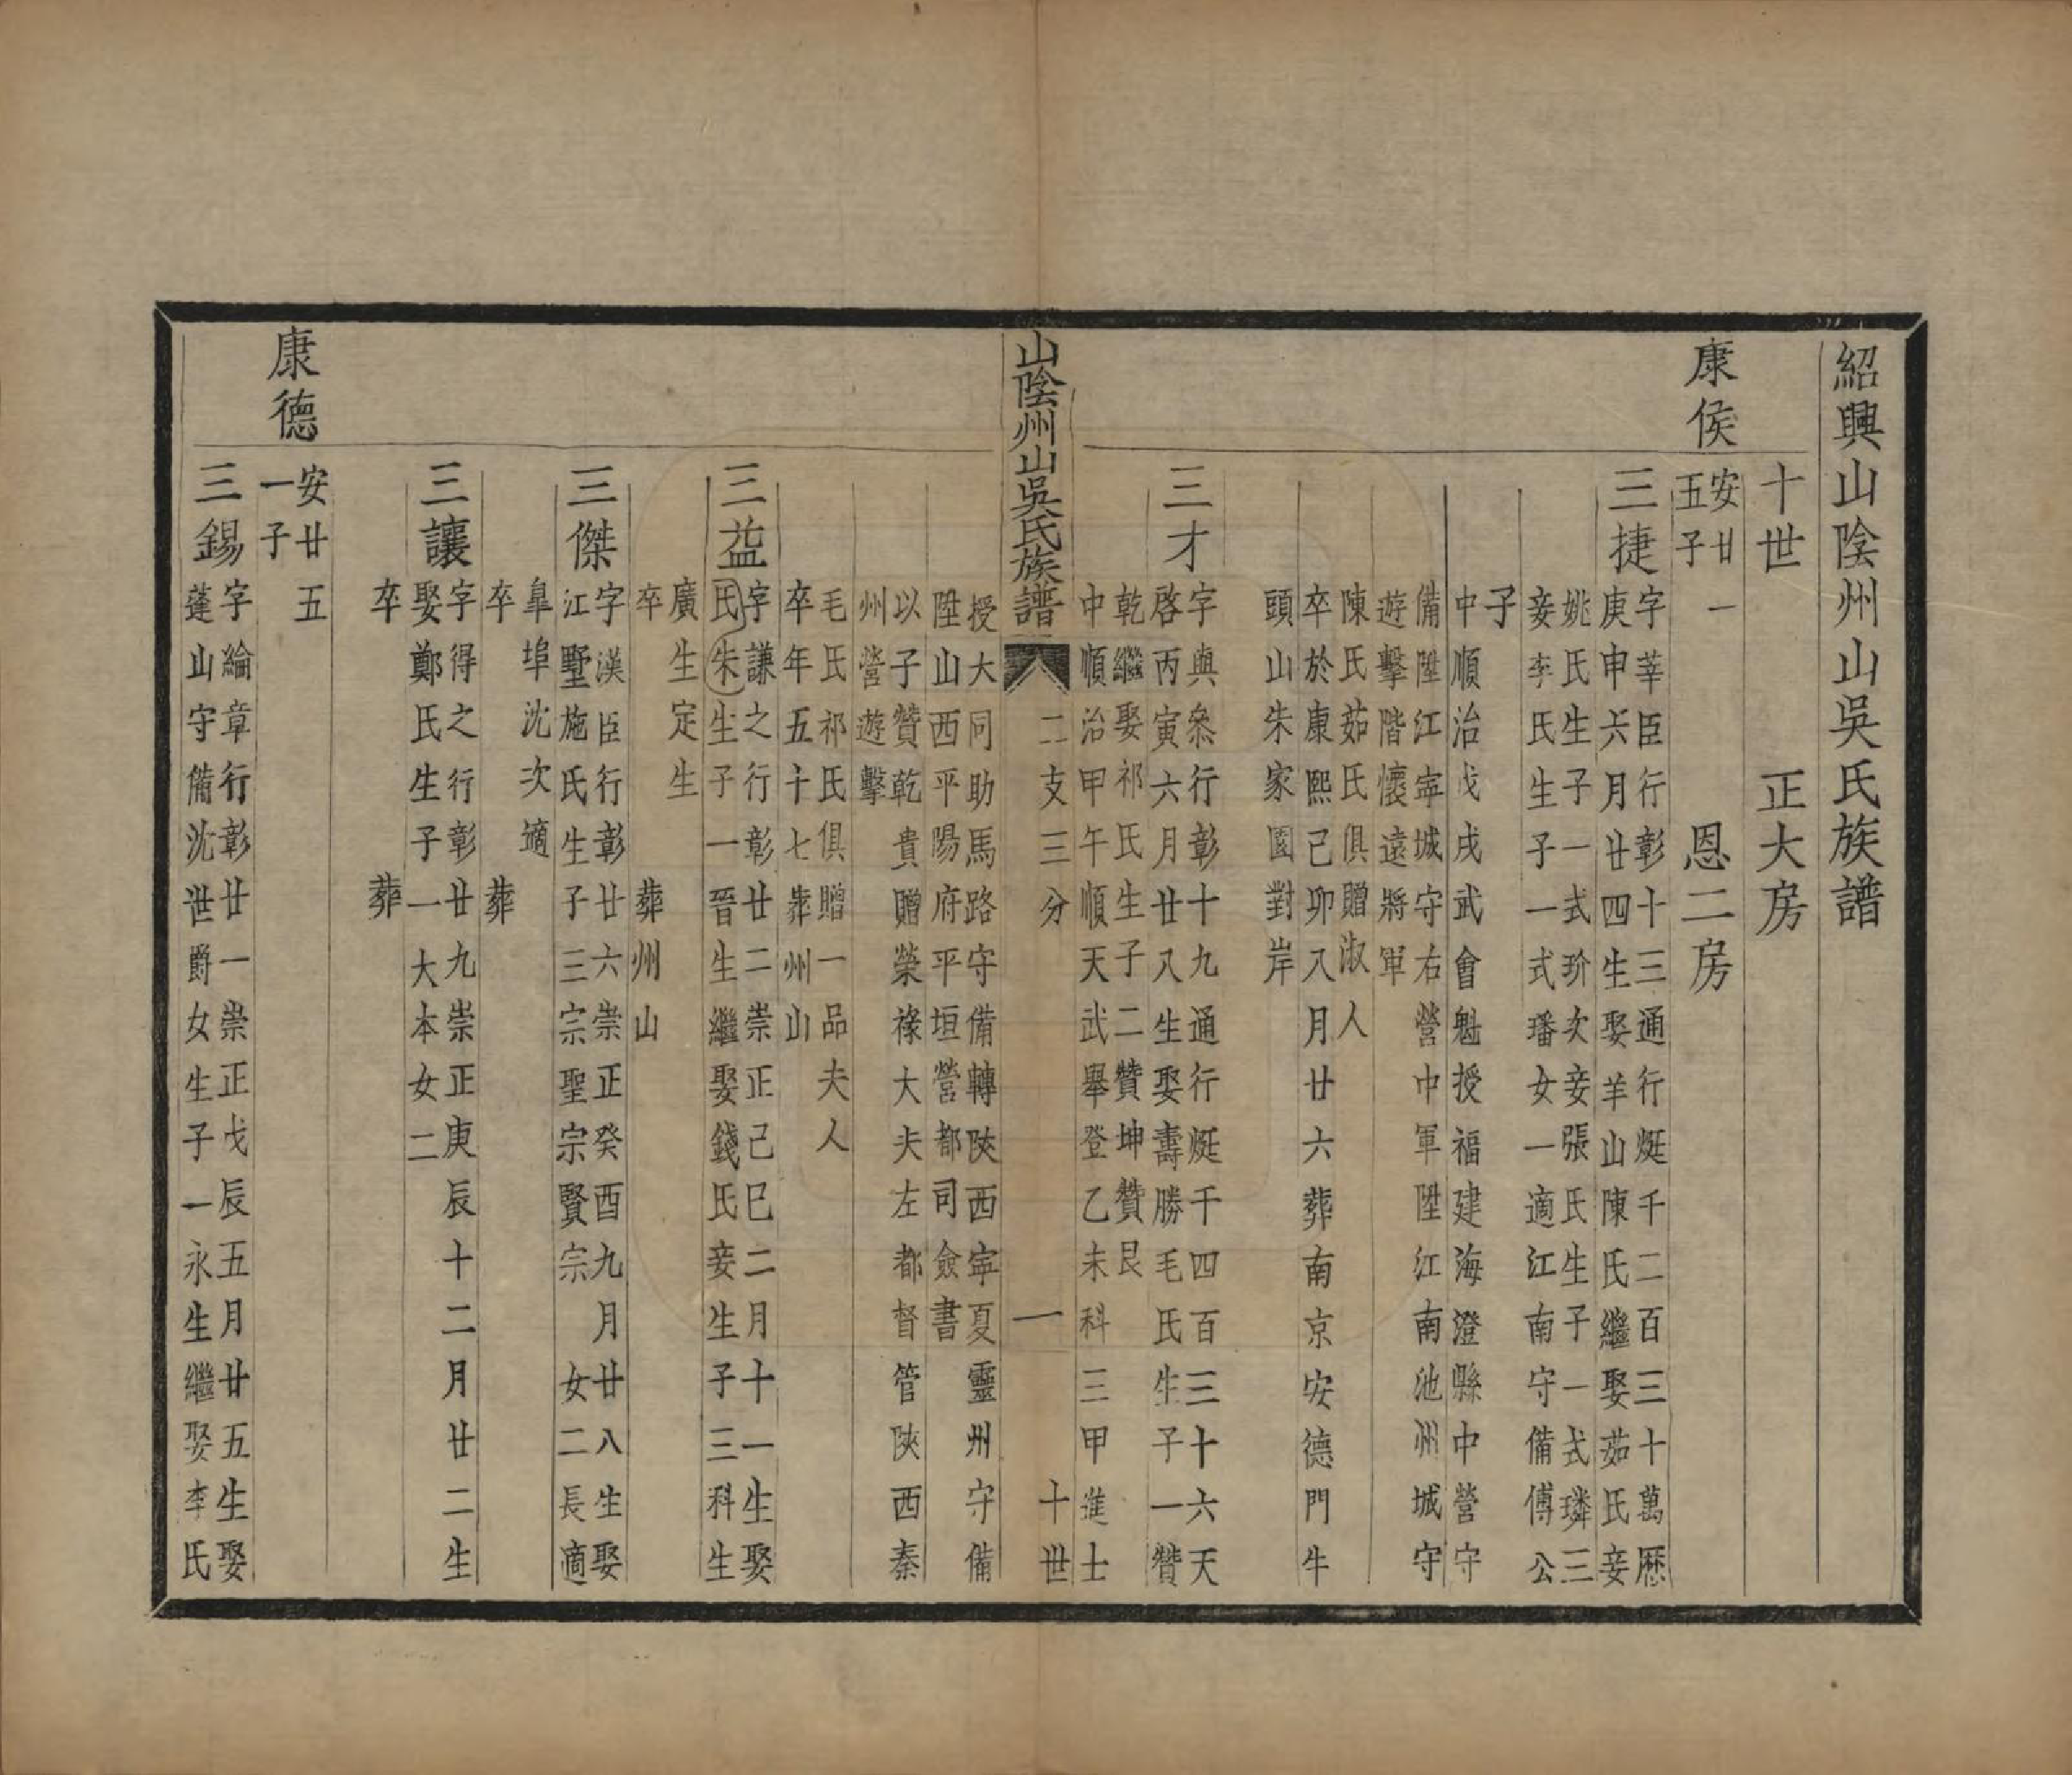 紹興山陰州山吳氏族譜
十世　正大房
康侯
安廿一
五子
恩二房
三捷
字莘臣行彰十三通行烶千二百三十萬歷
庚申六月廿四生娶羊山陳氏繼娶茹氏妾
姚氏生子一式玠次妾張氏生子一式璘三
妾李氏生子一式璠女一適江南守備傅公
子
中順治戊戌武會魁授福建海澄縣中營守
備陞江寧城守右營中軍陞江南池州城守
遊擊階懷遠將軍
陳氏茹氏俱贈淑人
卒於康熙己卯八月廿六葬南京安德門牛
頭山朱家園對岸
三才
字與叅行彰十九通行烶千四百三十六天
啓丙寅六月廿八生娶壽勝毛氏生子一贊
乾繼娶祁氏生子二贊坤贊艮
中順治甲午順天武舉登乙未科三甲進士
山陰州山吳氏族譜
二支三分　一　十世
授大同助馬路守備轉陝西寧夏靈州守備
陞山西平陽府平垣營都司僉書
以子贊乾貴贈榮祿大夫左都督管陝西秦
州營遊擊
毛氏祁氏俱贈一品夫人
卒年五十七葬州山
三益
字謙之行彰廿二崇正己巳二月十一生娶
氏朱生子一晉生繼娶錢氏妾生子三科生
廣生定生
卒　葬州山
三傑
字漢臣行彰廿六崇正癸酉九月廿八生娶
江墅施氏生子三宗聖宗賢宗　女二長適
皐埠沈次適
卒　葬
三讓
字得之行彰廿九崇正庚辰十二月廿二生
娶鄭氏生子一大本女二
卒　葬
康德
安廿五
一子
三錫
字綸章行彰廿一崇正戊辰五月廿五生娶
蓬山守備沈世爵女生子一永生繼娶李氏